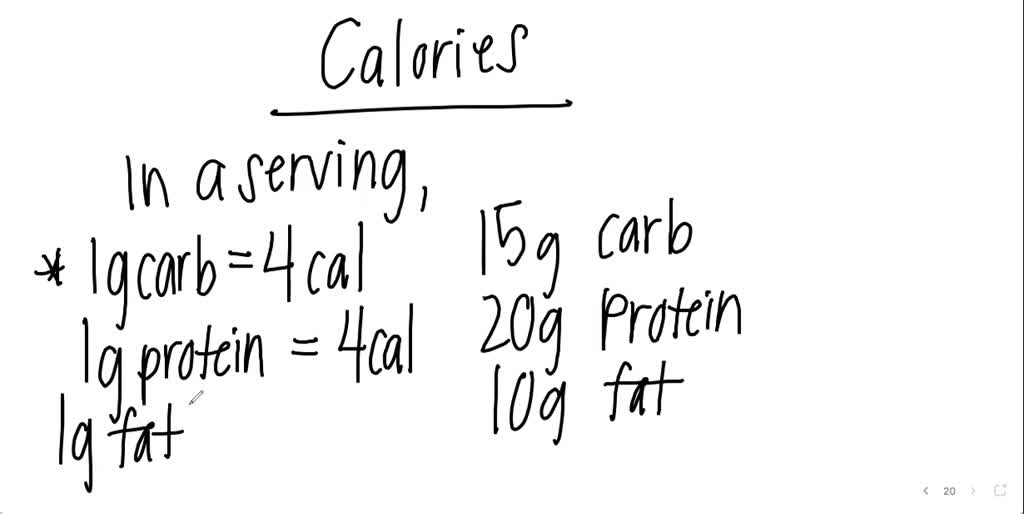 Calories
In a serving,
* 1g carb = 4 cal
1g protein = 4 cal
1g fat
15g carb
20g Protein
10g fat
< 20 >